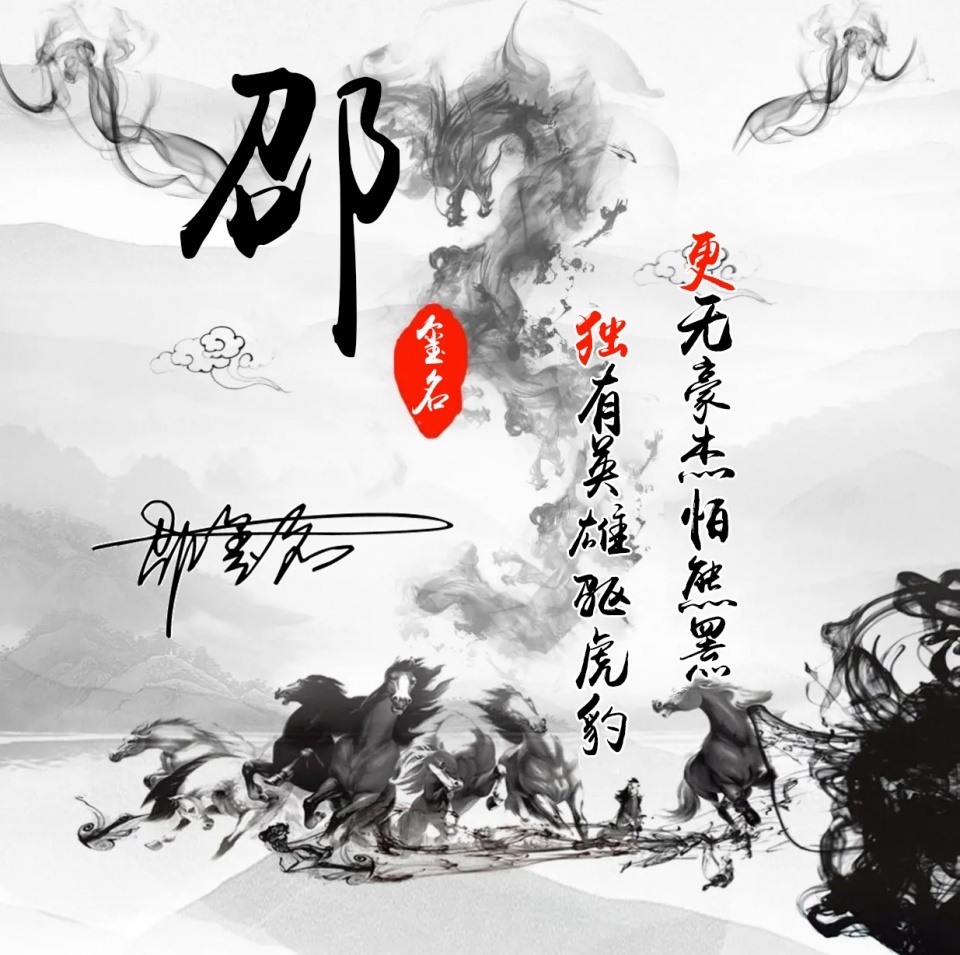 邵
玺名
邵玺名
更无豪杰怕熊罴
独有英雄驱虎豹